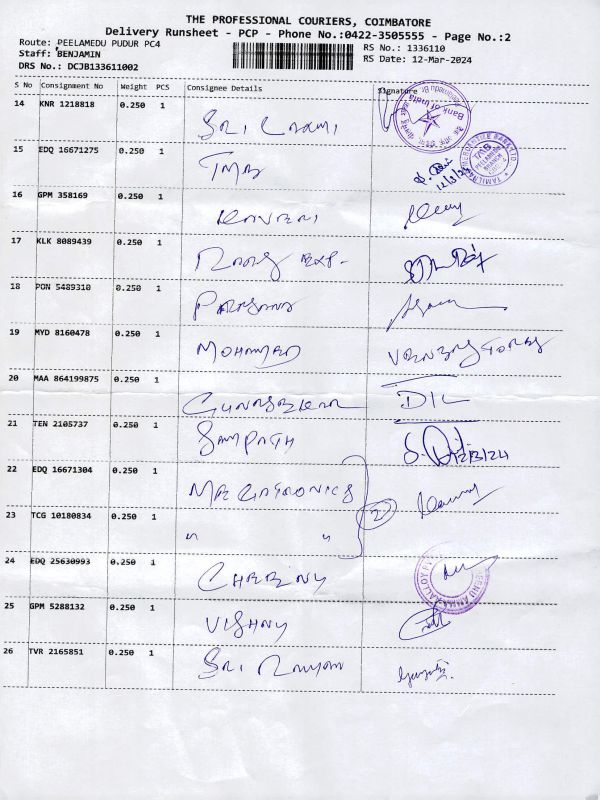 THE PROFESSIONAL COURIERS, COIMBATORE
Delivery Runsheet - PCP - Phone No.:0422-3505555 - Page No.:2
Route: PEELAMEDU PUDUR PC4
RS No.: 1336110
Staff: BENJAMIN
RS Date: 12-Mar-2024
DRS No.: DCJB133611002
S No Consignment No Weight PCS Consignee Details Signature
14 KNR 1218818 0.250 1
Bank of India
15 EDQ 16671275 0.250 1 TMB
12/3/24
16 GPM 358169 0.250 1 KAVERI
17 KLK 8089439 0.250 1
18 PON 5489310 0.250 1
19 MYD 8160478 0.250 1 MOHAMMED
20 MAA 864199875 0.250 1 GUNASEKAR DIL
21 TEN 2105737 0.250 1 SAMPATH 12/3/24
22 EDQ 16671304 0.250 1 MECATRONICS
2
23 TCG 10180834 0.250 1 " "
24 EDQ 25630993 0.250 1
25 GPM 5288132 0.250 1 VISHNU
26 TVR 2165851 0.250 1 SRI